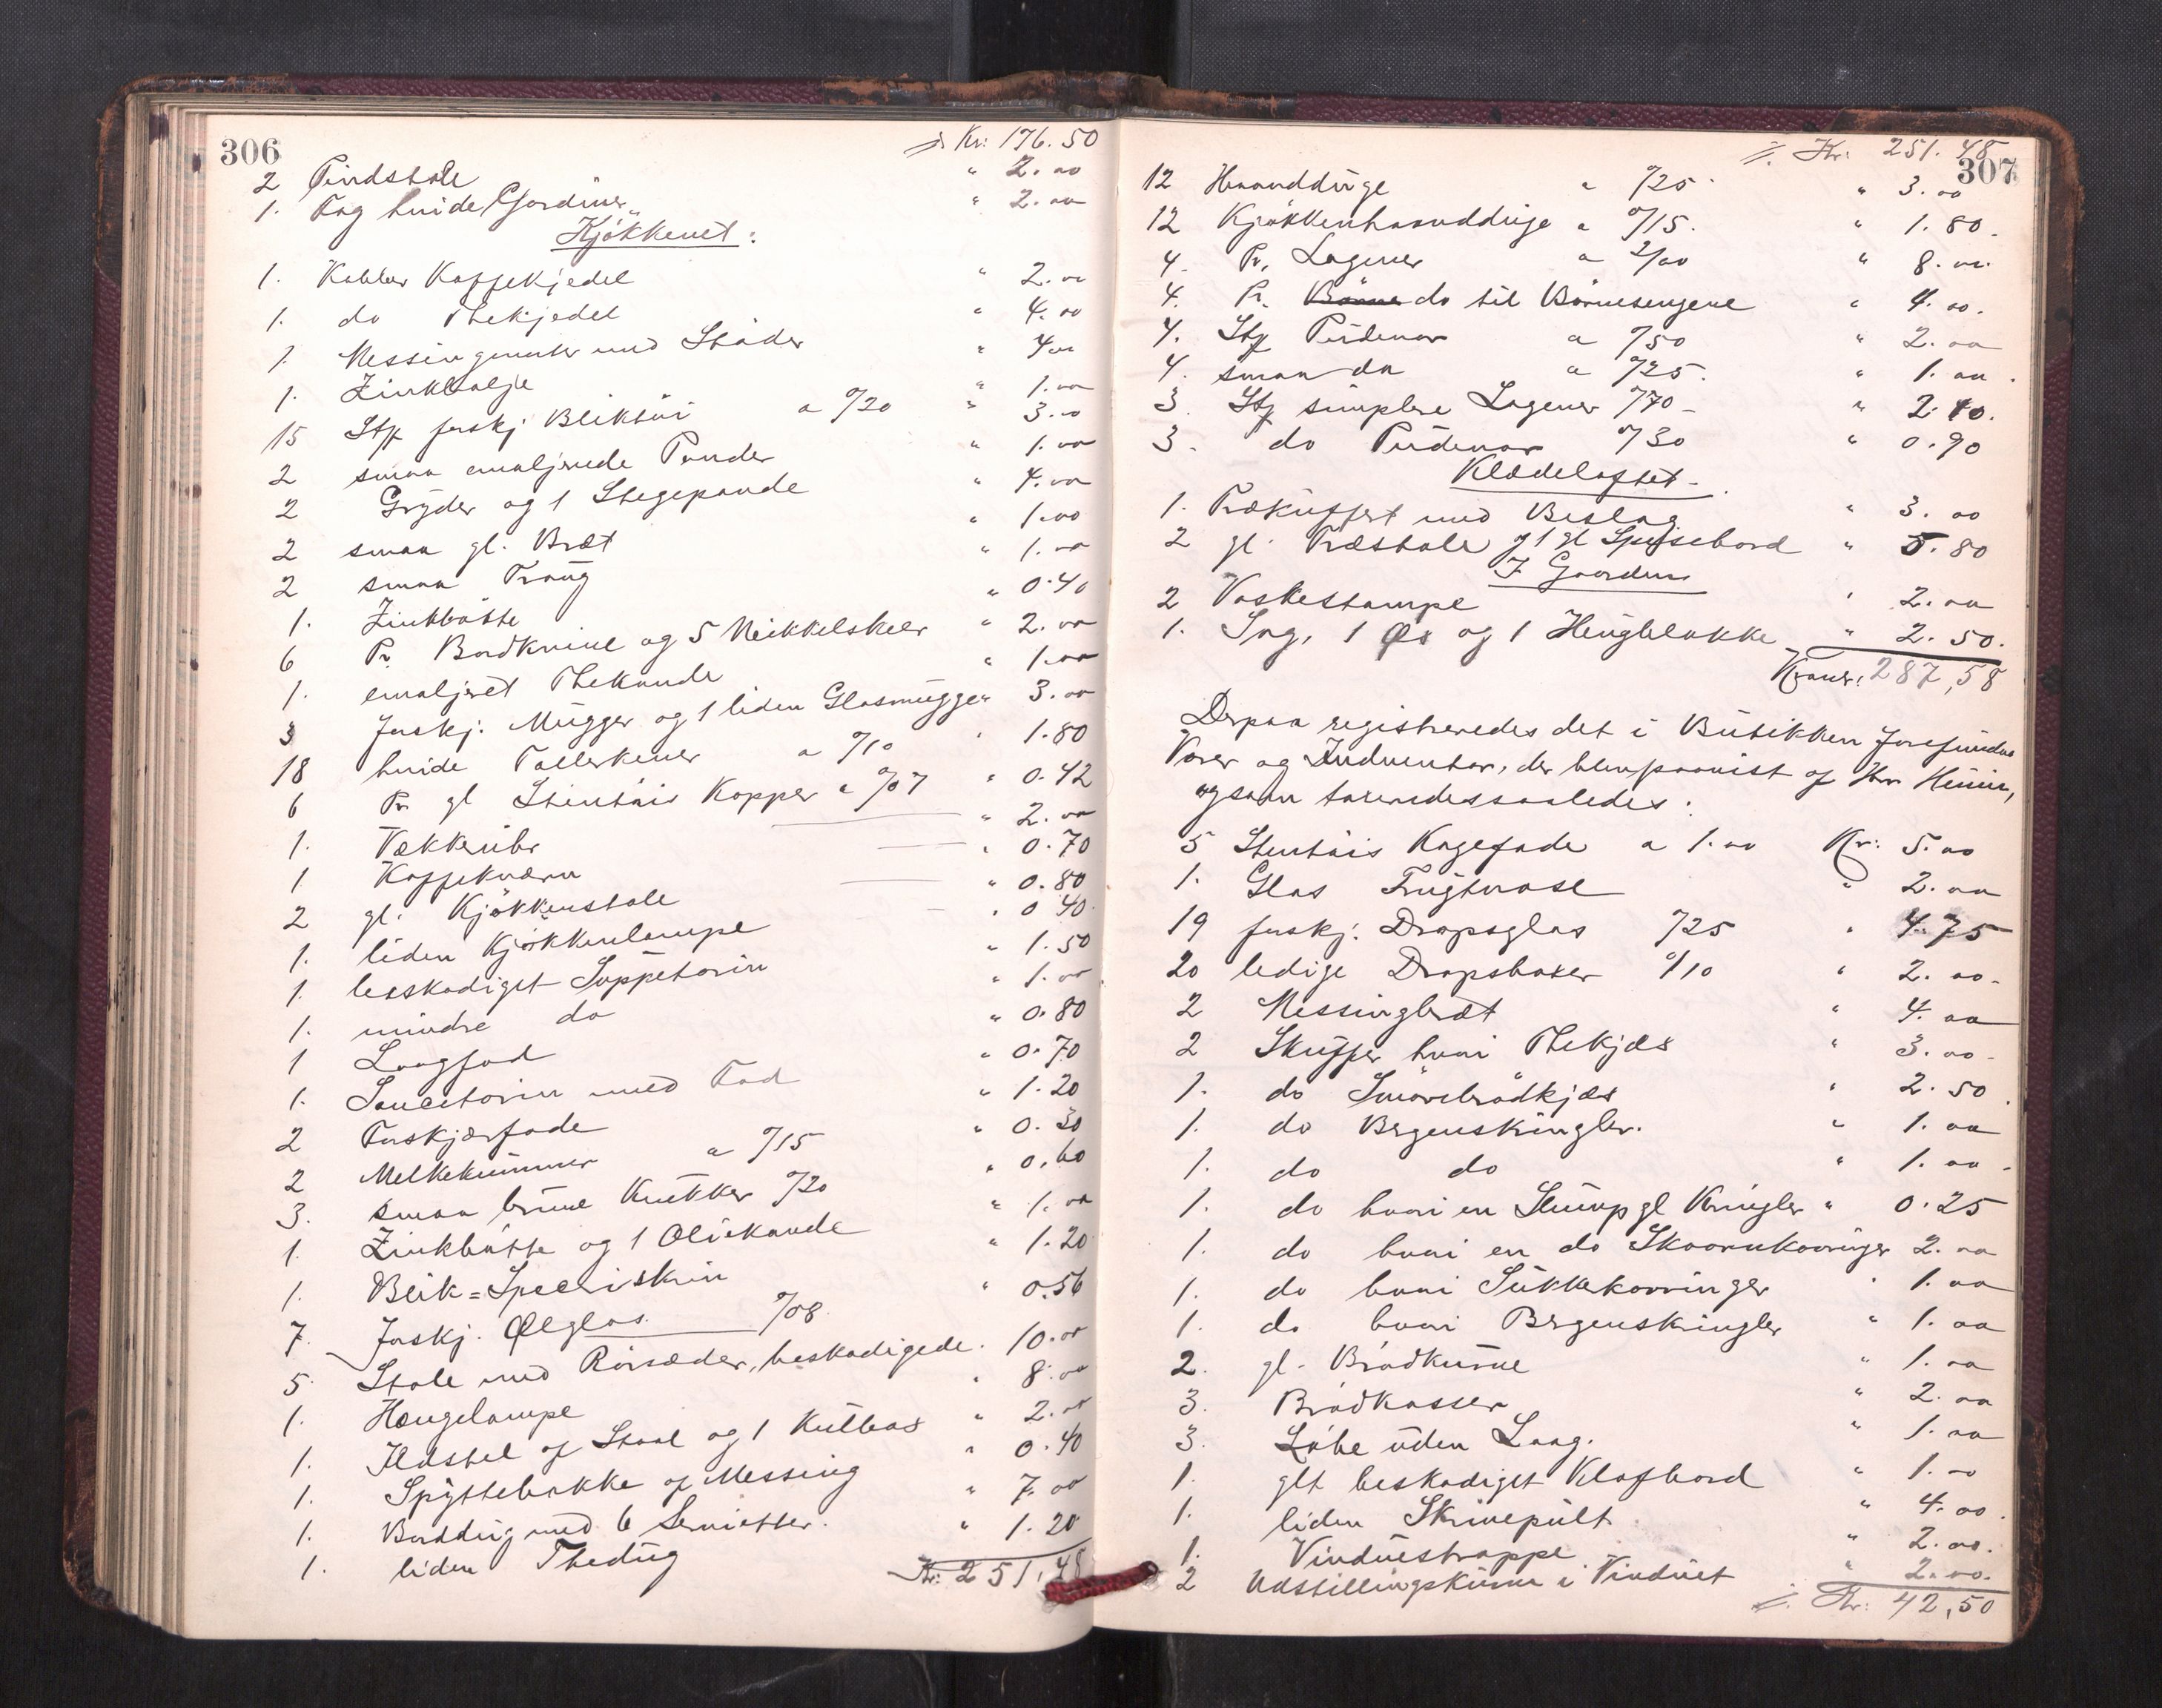 306
Kr: 176.50
2 Pindstole " 2.00
1. Fag hvide Gardiner " 2.00
Kjøkkenet:
1. Kobber Kaffekjedel " 2.00
1. do Thekjedel " 4.00
1. Messingmorter med Støder " 4.00
1. Zinkbalje " 1.00
15 Stk forskj. Bliktøi a 0/20 " 3.00
2 smaa emaljerede Pander " 1.00
2 Gryder og 1 Stegepande " 4.00
2 smaa gl. Bræt " 1.00
2 smaa Traug " 1.00
1. Zinkbøtte " 0.40
6 Pr. Bordknive og 5 Nikkelskeer " 2.00
1. emaljeret Thekande " 1.00
3 forskj. Mugger og 1 liden Glasmugge " 3.00
18 hvide Tallerkener a 0/10 " 1.80
6 Pr gl Stentøis Kopper a 0/07 " 0.42
1. Vækkeruhr " 2.00
1 Kaffekværn " 0.70
2 gl. Kjøkkenstole " 0.80
1. liden Kjøkkenlampe " 0 40
1. beskadiget Suppeterin " 1.50
1. mindre do " 1.00
1 Langfad " 0.80
1. Sauceterin med Fad " 0.70
2 Forskjærfade " 1.20
2 Melkekummer a 0/15 " 0.30
3. smaa brune Krukker 0/20 " 0.60
1. Zinkbøtte og 1 Oliekande " 1.00
1. Blik=Speceriskrin " 1.20
7. forskj. Ølglas 0/08 " 0.56
5 Stole med Rørsæder, beskadigede. 10.00
1. Hængelampe " 8.00
1. Ildstel af Staal og 1 Kulbox " 2.00
1. Spyttebakke af Messing " 0.40
1. Borddug med 6 Servietter. " 7.00
1. liden Thedug " 1.20
Kr: 251,48
307
Kr: 251.48
12 Haandduge a 0/25 " 3.00
12 Kjøkkenhaandduge a 0/15. " 1.80.
4. Pr. Lagener a 2/00 " 8.00
4. Pr. Børne do til Børnesengene " 4.00.
4. Stk Pudevar a 0/50 " 2.00
4. smaa do a 0/25. " 1.00.
3. Stk simplere Lagener 0/70 - " 2.10.
3. do Pudevar 0/30 " 0.90
Klædeloftet.
1. Trækuffert med Beslag " 3.00
2 gl. Træstole og 1 gl Spisebord " 5.80
I Gaarden
2 Vaskestampe " 2.00
1. Sag, 1 Øx og 1 Hugblokke " 2.50.
Kroner: 287,58
Derpaa registreredes det i Butikken forefundne
Varer og Indventar, der blev paavist af Hr
og som taxeredes saaledes:
5 Stentøis Kagefade a 1.00 Kr: 5.00
1. Glas Frugtvase " 2.00
19 forskj. Dropsglas 0/25 " 4.75
20 ledige Dropsboxer 0/10 " 2.00.
2 Messingbræt " 4.00
2 Skuffer hvori Thekjæs " 3.00
1. do Smørebrødkjæs " 2.50
1. do Bergenskringler. " 1.00
1. do do " 1.00
1. do hvori en Slump gl Kringler " 0.25
1. do hvori en do Skoonnkavringer 2.00
1. do hvori Sukkekavringer " 1.00
1. do hvori Bergenskringler " 1.00
2. gl. Brødkurve " 1.00
3. Brødkasser " 2.00
3. Løbe uden Laag. " 1.00
1. glt beskadiget Klafbord " 1.00
1. liden Skrivepult " 4.00.
1. Vinduestrappe " 2.00.
2 Udstillingskurve i Vinduet " 2.00.
Kr: 42,50